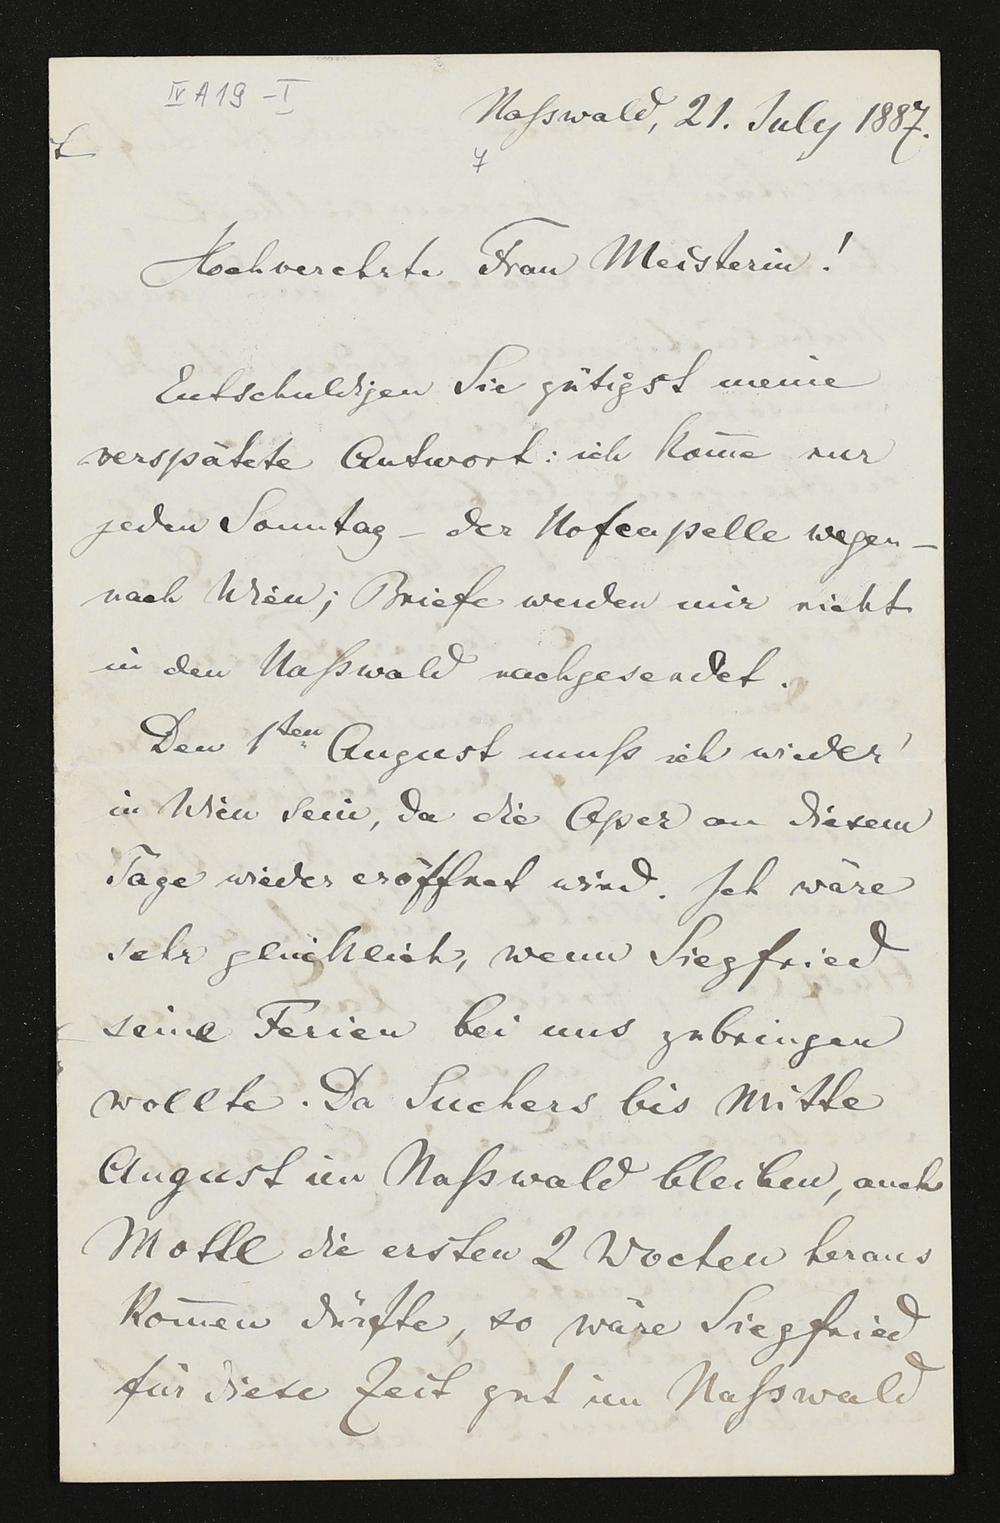 IV A 19 - I
Naßwald, 21. July 1887.
7
Hochverehrte Frau Meisterin!
Entschuldigen Sie gütigst meine
verspätete Antwort: ich kom̄e nur
jeden Sonntag – der Hofcapelle wegen –
nach Wien; Briefe werden mir nicht
in den Naßwald nachgesendet.
Den 1ten August muß ich wieder
in Wien sein, da die Oper an diesem
Tage wieder eröffnet wird. Ich wäre
sehr glücklich, wenn Siegfried
seine Ferien bei uns zubringen
wollte. Da Suchers bis Mitte
August im Naßwald bleiben, auch
Mottl die ersten 2 Wochen heraus
kom̄en dürfte, so wäre Siegfried
für diese Zeit gut im Naßwald